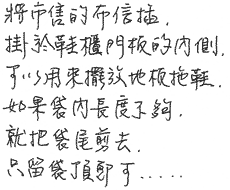 將市售的布信插,
掛於鞋櫃門板的內側.
可以用來擺放地板拖鞋.
如果袋內長度不夠.
就把袋尾剪去.
只留袋頂即可.....